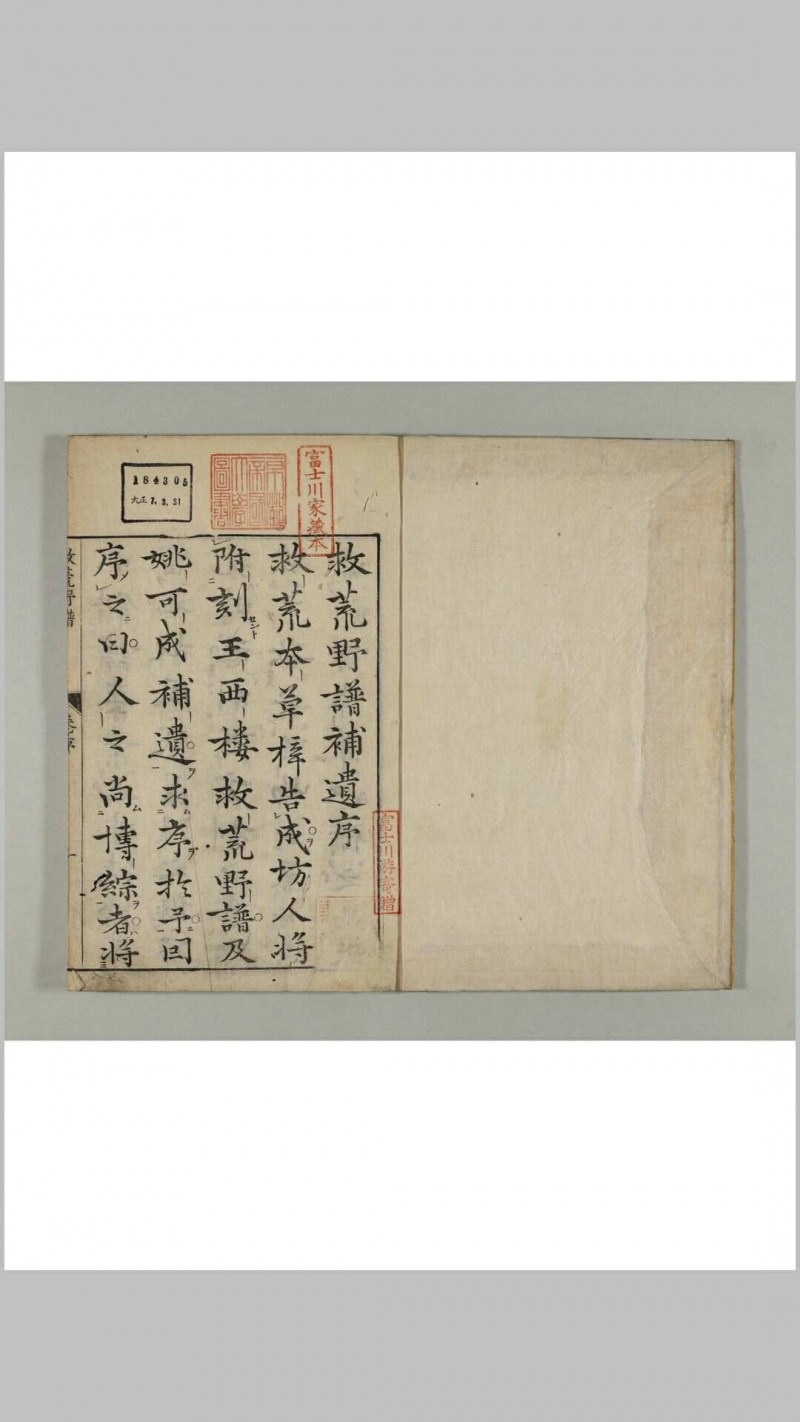 富士川家藏本
京都
帝國
大學
圖書
184305
大正7.3.31
富士川游寄贈
救荒野譜補遺序
救荒本草梓告成坊人將
附刻王西樓救荒野譜及
姚可成補遺求序於予因
序之曰人之尚博綜者將
救荒野譜